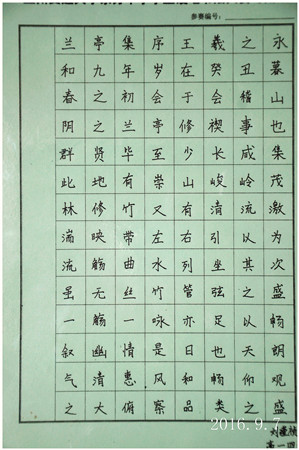 参赛编号：
兰亭集序王羲之永
和九年岁在癸丑暮
春之初会于会稽山
阴之兰亭修禊事也
群贤毕至少长咸集
此地有崇山峻岭茂
林修竹又有清流激
湍映带左右引以为
流觞曲水列坐其次
虽无丝竹管弦之盛
一觞一咏亦足以畅
叙幽情是日也天朗
气清惠风和畅仰观
之大俯察品类之盛
2016.9.7
高一